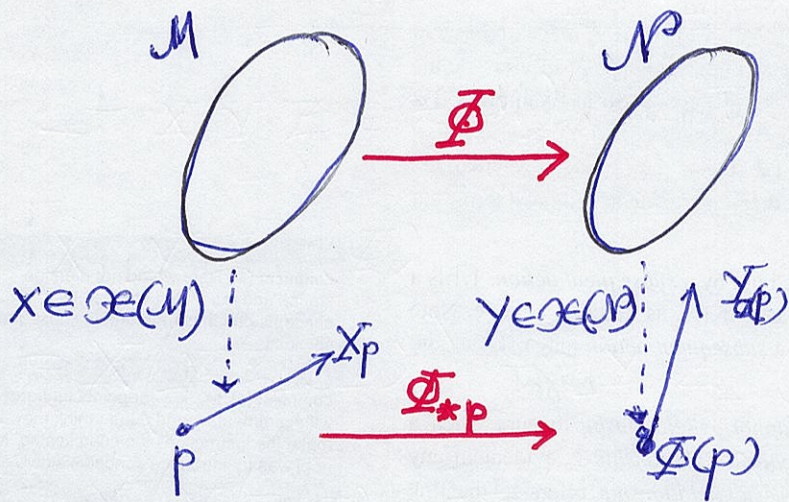 M N
Φ
X ∈ 𝔛(M) Y ∈ 𝔛(N) Y_Φ(p)
X_p
Φ_*p
p Φ(p)